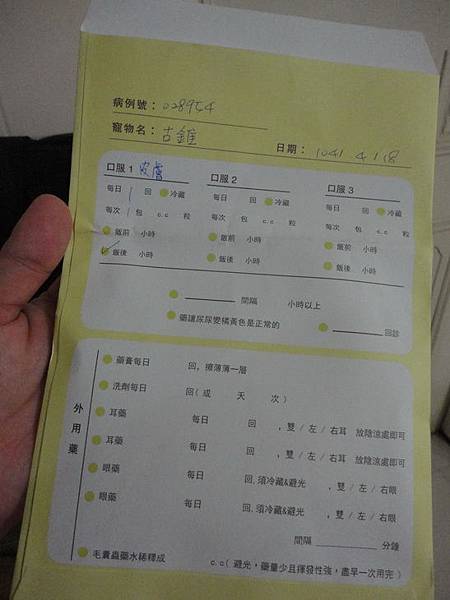 病例號：028954
寵物名：古錐
日期：104/ 4 / 18
口服1 皮膚 口服2 口服3
每日 1 回 冷藏 每日 回 冷藏 每日 回 冷藏
每次 1 包 c.c 粒 每次 包 c.c 粒 每次 包 c.c 粒
飯前 小時 飯前 小時 飯前 小時
✓飯後 小時 飯後 小時 飯後 小時
間隔 小時以上
藥讓尿尿變橘黃色是正常的 回診
外用藥
藥膏每日 回，擦薄薄一層
洗劑每日 回(或 天 次)
耳藥 每日 回 ，雙/左/右耳 放陰涼處即可
耳藥 每日 回 ，雙/左/右耳 放陰涼處即可
眼藥 每日 回,須冷藏&避光 ，雙/左/右眼
眼藥 每日 回,須冷藏&避光 ，雙/左/右眼
間隔 分鐘
毛囊蟲藥水稀釋成 c.c(避光，藥量少且揮發性強，盡早一次用完)